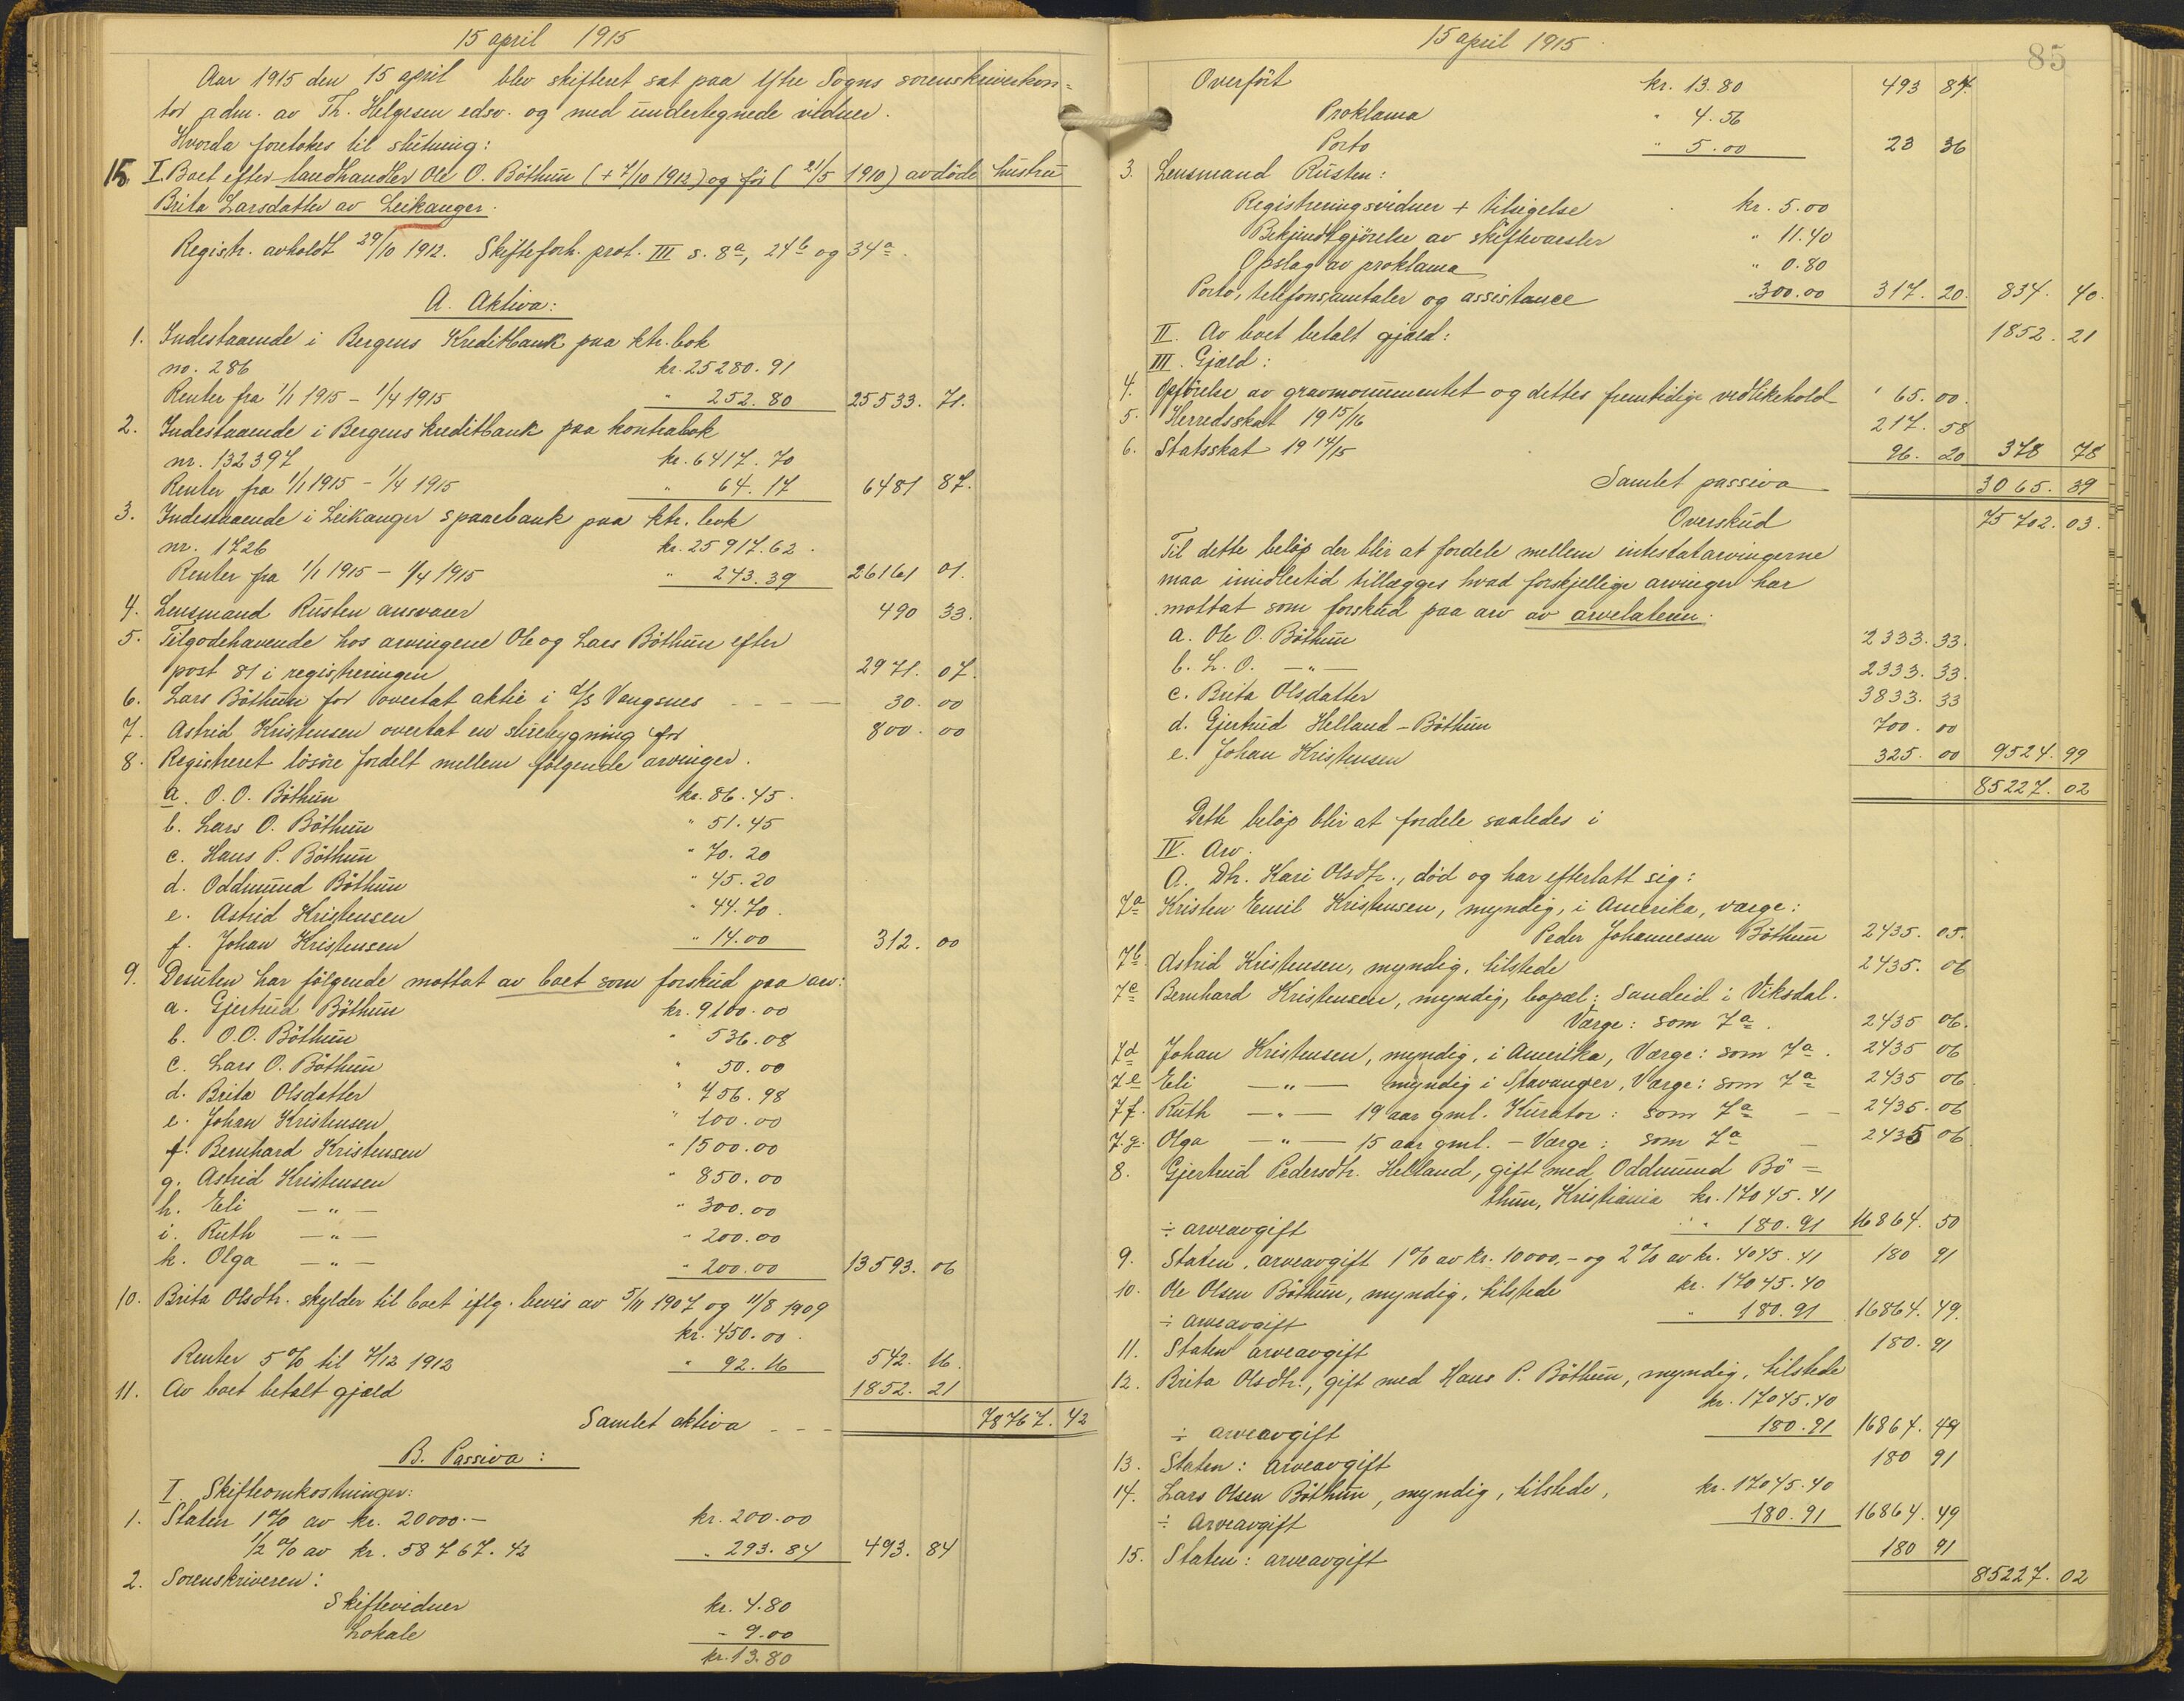 15 april 1915
Aar 1915 den 15 april blev skifteret sat paa Ytre Sogns sorenskriverkon=
tor adm. av Th. Helgesen edsv. og med undertegnede vidner.
Hvorda foretokes til slutning:
15. I. Boet efter landhandler Ole O. Böthun (+ 7/10 1912) og för (21/5 1910) avdöde hustru
Brita Larsdatter av Leikanger.
Registr. avholdt 29/10 1912. Skifteforh. prot. III s. 8a, 24b og 34a.
A. Aktiva:
1. Indestaaende i Bergens Kreditbank paa ktr. bok
no. 286 kr. 25280.91
Renter fra 1/1 1915 - 1/4 1915 " 252.80 25533.71.
2. Indestaaende i Bergens Kreditbank paa kontrabok
nr. 132397 kr. 6417.70
Renter fra 1/1 1915 - 1/4 1915 " 64.17 6481 87.
3. Indestaaende i Leikanger sparebank paa ktr. bok
nr. 1726 kr. 25917.62.
Renter fra 1/1 1915 - 1/4 1915 " 243.39 26161 01.
4. Lensmand Rusten ansvarer 490 33.
5. Tilgodehavende hos arvingene Ole og Lars Böthun efter
post 81 i registreringen 2971.07.
6. Lars Böthun for overtat aktie i A/S Vangsnes - - - - 30.00
7. Astrid Kristensen overtat en stuebygning for 800.00
8. Registreret lösöre fordelt mellem fölgende arvinger.
a. O.O. Böthun kr. 86.45.
b. Lars O. Böthun " 51.45
c. Hans P. Böthun " 70.20
d. Oddmund Böthun " 45.20
e. Astrid Kristensen " 44.70.
f. Johan Kristensen " 14.00 312.00
9. Desuten har fölgende mottat av boet som forskud paa arv:
a. Gjertrud Böthun kr. 9100.00
b. O.O. Böthun " 536.08
c. Lars O. Böthun " 50.00
d. Brita Olsdatter " 756.98
e. Johan Kristensen " 100.00
f. Bernhard Kristensen " 1500.00
g. Astrid Kristensen " 850.00
h. Eli — " — " 300.00
i. Ruth — " — " 200.00
k. Olga — " — " 200.00 13593.06
10. Brita Olsdtr. skylder til boet iflg. bevis av 5/11 1907 og 11/8 1909
kr. 450.00.
Renter 5% til 7/12 1912 " 92.16 542.16.
11. Av boet betalt gjæld 1852.21
Samlet aktiva - - - 78767.42
B. Passiva:
I. Skifteomkostninger:
1. Staten 1% av kr. 20000.- kr. 200.00
1/2 % av kr. 58767.42 " 293.84 493.84
2. Sorenskriveren:
Skiftevidner kr. 4.80
Lokale - 9.00
kr. 13.80
15 april 1915.
85
Overfört kr. 13.80 493 84.
Proklama " 4.56
Porto " 5.00 23 36
3. Lensmand Rusten:
Registreringsvidner + tilsigelse kr. 5.00
Bekjendtgjörelse av skiftevarsler " 11.40
Opslag av proklama " 0.80
Porto, telefonsamtaler og assistance 300.00 317.20. 834.40.
II. Av boet betalt gjæld: 1852.21
III. Gjæld:
4. Opförelse av gravmonumentet og dettes fremtidige vedlikehold 65.00.
5. Herredsskat 1915/16 217.58
6. Statsskat 1914/15 96.20 378 78
Samlet passiva 3065.39
Overskud 75702.03.
Til dette belöp der blir at fordele mellem intestatarvingerne
maa imidlertid tillægges hvad forskjellige arvinger har
mottat som forskud paa arv av arvelateren.
a. Ole O. Böthun 2333.33.
b. L.O. — " — 2333.33.
c. Brita Olsdatter 3833.33
d. Gjertrud Helland-Böthun 700.00
e. Johan Kristensen 325.00 9524.99
85227.02
Dette belöp blir at fordele saaledes i
IV. Arv.
A. Dtr. Kari Olsdtr., död og har efterlatt sig:
7a Kristen Emil Kristensen, myndig, i Amerika, værge:
Peder Johannesen Böthun 2435.05.
7b Astrid Kristensen, myndig, tilstede 2435.06
7c Bernhard Kristensen, myndig, bopæl: Sandeid i Viksdal.
Værge: som 7a. 2435 06.
7d Johan Kristensen, myndig, i Amerika, Værge: som 7a. 2435 06
7e Eli — " — myndig i Stavanger, Værge: som 7a 2435 06.
7f. Ruth — " — 19 aar gml. Kurator: som 7a - - 2435.06
7.g. Olga — " — 15 aar gml. - Værge: som 7a - 2435 06.
8. Gjertrud Pedersdtr. Helland, gift med Oddmund Bö=
thun, Kristiania kr. 17045.41
÷ arveavgift " 180.91 16864.50
9. Staten, arveavgift 1% av kr. 10000,- og 2% av kr. 4045.41 180 91
10. Ole Olsen Böthun, myndig, tilstede kr. 17045.40
÷ arveavgift " 180.91 16864.49.
11. Staten arveavgift 180.91
12. Brita Olsdtr., gift med Hans P. Böthun, myndig, tilstede
kr. 17045.40
÷ arveavgift 180.91 16864.49
13. Staten: arveavgift 180 91
14. Lars Olsen Böthun, myndig, tilstede, kr. 17045.40
÷ Arveavgift 180.91 16864.49
15. Staten: arveavgift 180 91
85227.02